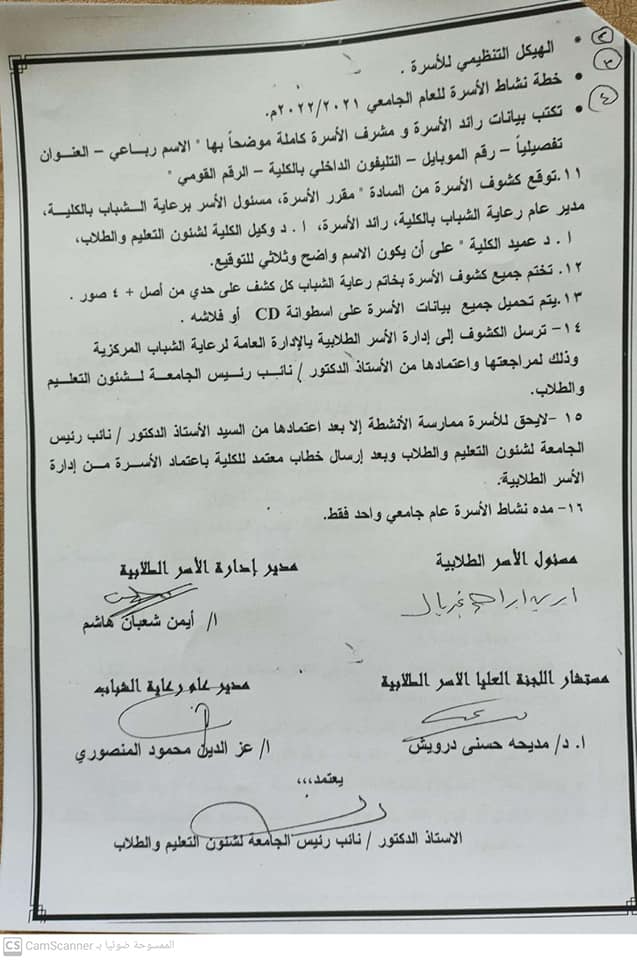 ٢ • الهيكل التنظيمي للأسرة .
٣ • خطة نشاط الأسرة للعام الجامعي ٢٠٢٢/٢٠٢١م.
٤ • تكتب بيانات رائد الأسرة و مشرف الأسرة كاملة موضحاً بها " الاسم رباعي – العنوان
تفصيلياً – رقم الموبايل – التليفون الداخلي بالكلية – الرقم القومي "
١١.توقع كشوف الأسرة من السادة " مقرر الأسرة، مسئول الأسر برعاية الشباب بالكلية،
مدير عام رعاية الشباب بالكلية، رائد الأسرة، ا . د وكيل الكلية لشئون التعليم والطلاب،
ا . د عميد الكلية " على أن يكون الاسم واضح وثلاثي للتوقيع.
١٢. تختم جميع كشوف الأسرة بخاتم رعاية الشباب كل كشف على حدي من أصل + ٤ صور .
١٣.يتم تحميل جميع بيانات الأسرة على اسطوانة CD أو فلاشه .
١٤- ترسل الكشوف إلى إدارة الأسر الطلابية بالإدارة العامة لرعاية الشباب المركزية
وذلك لمراجعتها واعتمادها من الأستاذ الدكتور / نائب رئيس الجامعة لشئون التعليم
والطلاب.
١٥ -لايحق للأسرة ممارسة الأنشطة إلا بعد اعتمادها من السيد الأستاذ الدكتور / نائب رئيس
الجامعة لشئون التعليم والطلاب وبعد إرسال خطاب معتمد للكلية باعتماد الأسرة من إدارة
الأسر الطلابية.
١٦- مده نشاط الأسرة عام جامعي واحد فقط.
مسئول الأسر الطلابية
مدير إدارة الأسر الطلابية
ا/ أيمن شعبان هاشم
مستشار اللجنة العليا الأسر الطلابية
مدير عام رعاية الشباب
ا. د/ مديحه حسنى درويش
ا/ عز الدين محمود المنصوري
يعتمد،،،
الاستاذ الدكتور / نائب رئيس الجامعة لشئون التعليم والطلاب
CS CamScanner الممسوحة ضوئيا بـ